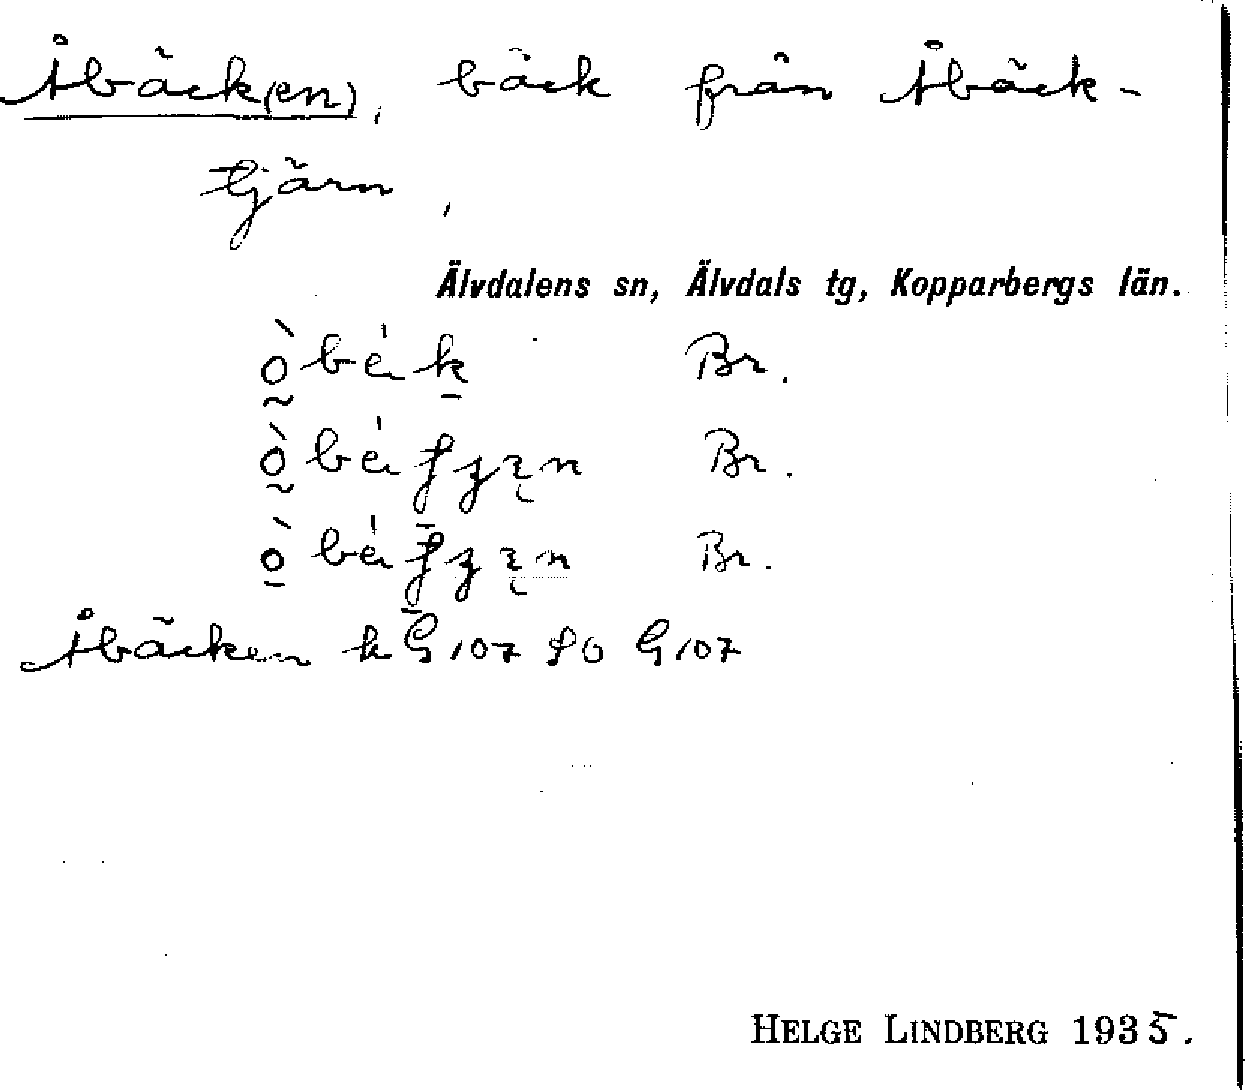 Åbäck(en), bäck från Åbäck-
tjärn,
Älvdalens sn, Älvdals tg, Kopparbergs län.
Br.
Br.
Br.
Åbäcken k G 107 G 107
HELGE LINDBERG 1935.